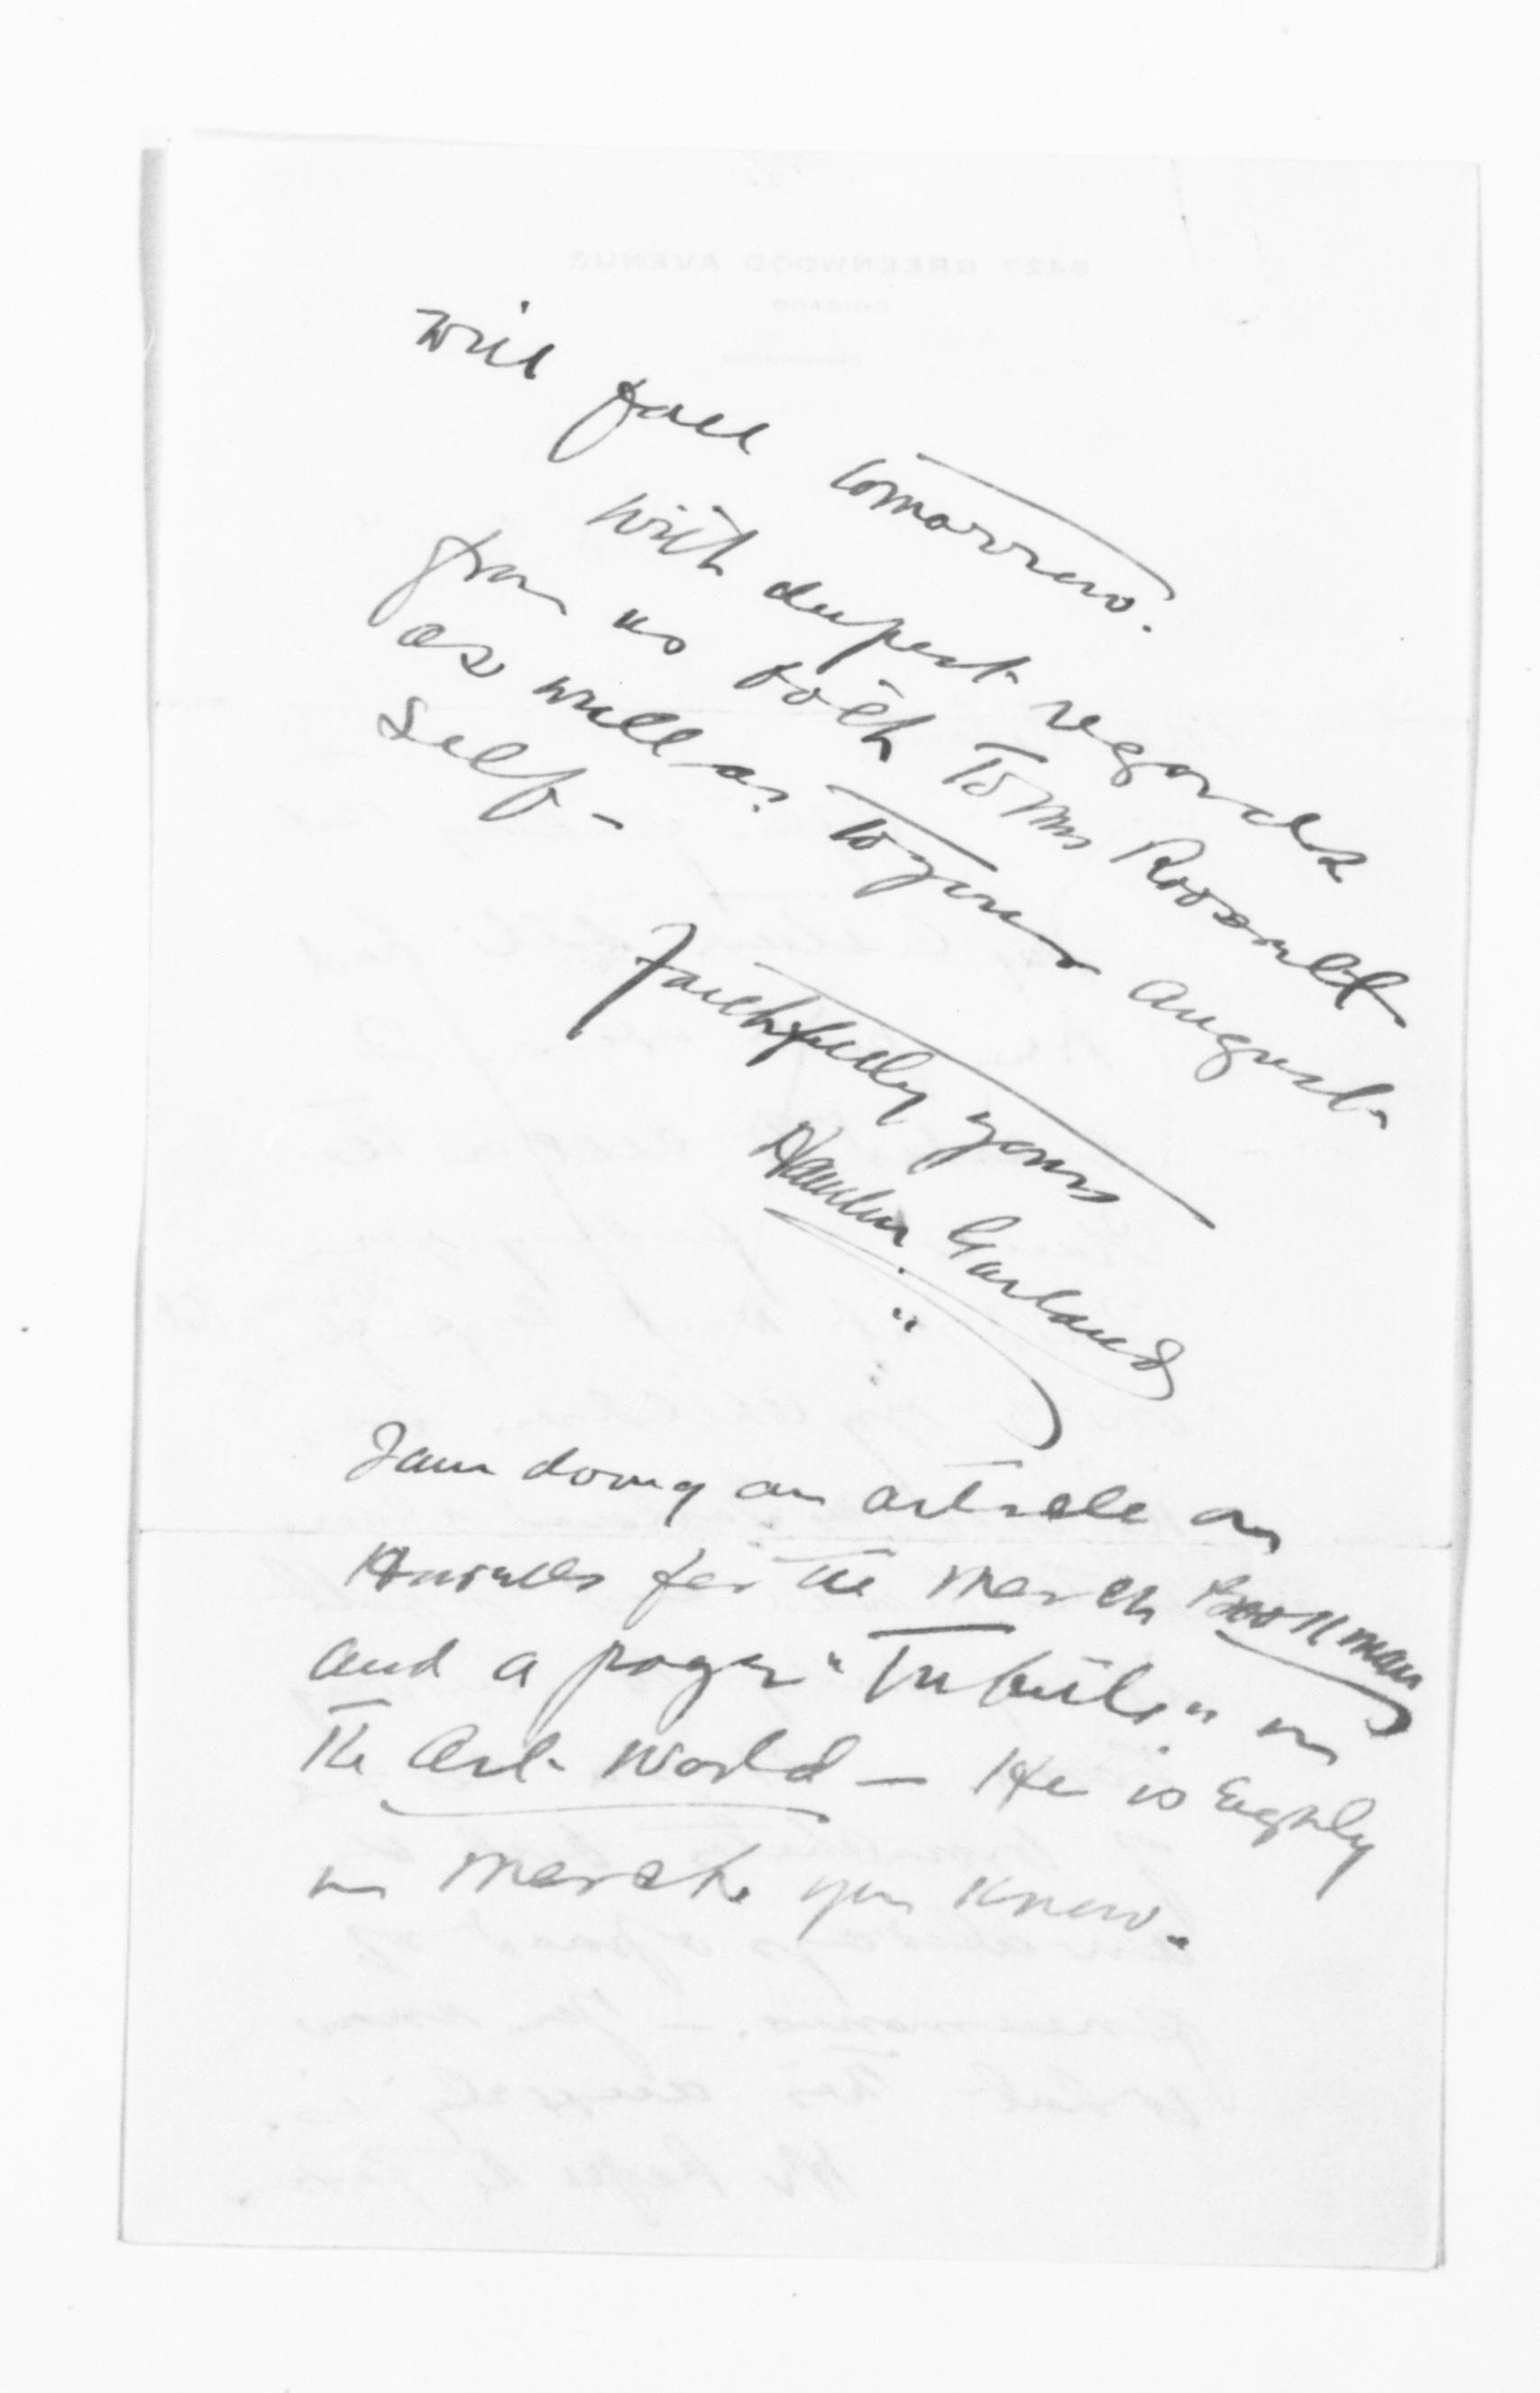 will fall tomorrow.
With deepest regards
from us both To Mrs Roosevelt
as well as to your august
self –
Faithfully yours
Hamlin Garland
I am doing an article on
Howells for the March Bookman
and a page "Tribute" in
The Art World – He is Eighty
in March you know.